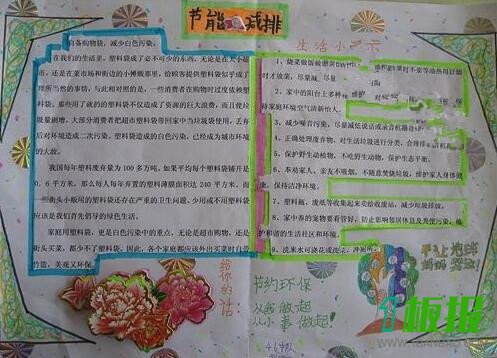 节能减排
自备购物袋，减少白色污染。
在我们的生活里，塑料袋成了必不可少的东西，无论是在大小超
市，还是在菜市场和街边的小摊贩那里，给顾客提供塑料袋似乎成了
理所当然的事情，与此相对照的是，一些消费者在购物时过度依赖塑
料袋。那些用了就扔的塑料袋不仅造成了资源的巨大浪费，而且使垃
圾量剧增。大部分消费者把超市塑料袋带回家中当垃圾袋使用，丢弃
后对环境造成二次污染。塑料袋造成的白色污染，已经成为城市环境
的大敌。
我国每年塑料废弃量为100多万吨。如果平均每个塑料袋铺开是
0.6平方米，那么每人每年弃置的塑料薄膜面积达240平方米。而
一些街头小贩用的塑料袋还存在严重的卫生问题。少用或不用塑料袋
应该是我们首先倡导的绿色生活。
家庭用塑料袋，更是白色污染中的重点，无论是超市购物，还是
街头买菜，都少不了塑料袋。因此，各个家庭都应该外出买菜时自带
竹篮，美观又环保。
生活小
1、烧菜做饭
时才放菜，尽量减
2、家中的阳台上多种
持家庭环境空气清新怡人。
3、减少噪音污染，尽量减低说话或录音机播
4、正确处理废弃物，对生活垃圾进行分类，
5、保护野生动植物，不吃野生动物，保护生态平衡。
6、奉劝家人、亲友不吸烟，不随意焚烧垃圾，维护家人身体健
康，保持洁净环境。
7、塑料瓶、废纸等收集起来卖给收废品，减少垃圾排放。
8、家中养的宠物要看管好，防止影响邻居休息及粪便污染，维
护和谐的生活社区和环境。
9、洗米水可浇花或洗菜、冲厕所
给你的话：
节约环保
从我做起
从小事做起！
不让地球
妈妈哭泣！
板报